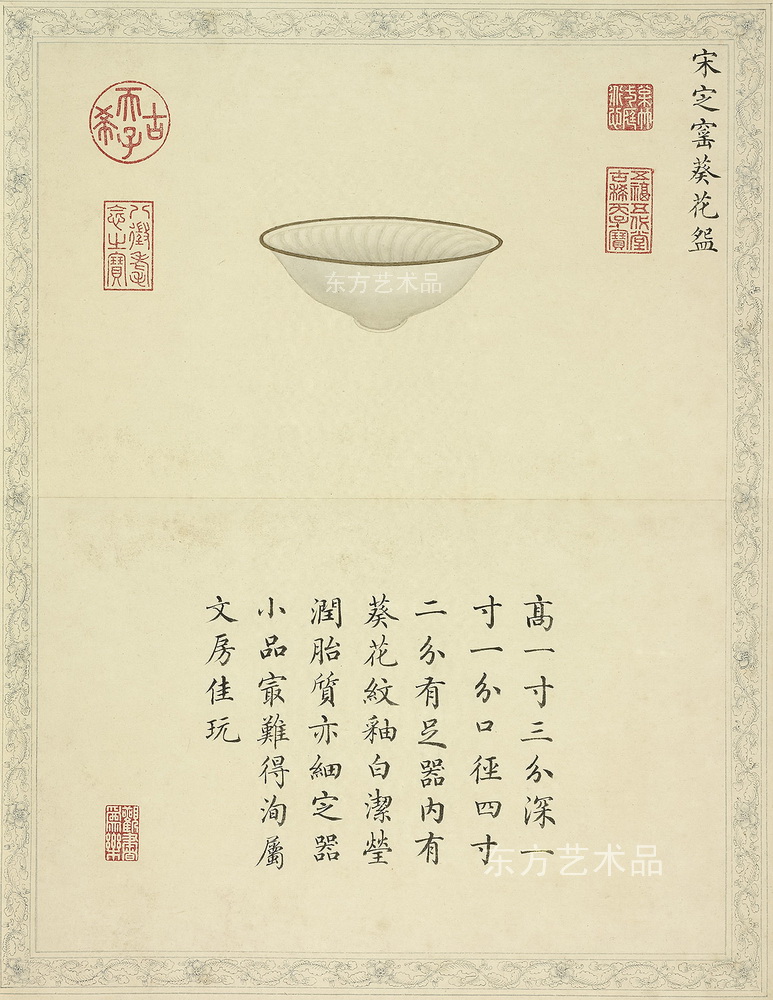 宋㝎窰葵花盌
五福五代堂古稀天子寶
古希天子
八徵耄念之寶
东方艺术品
髙一寸三分深一
寸一分口徑四寸
二分有足器内有
葵花紋釉白潔瑩
潤胎質亦細㝎器
小品㝡難得洵屬
文房佳玩
觀書爲樂
东方艺术品